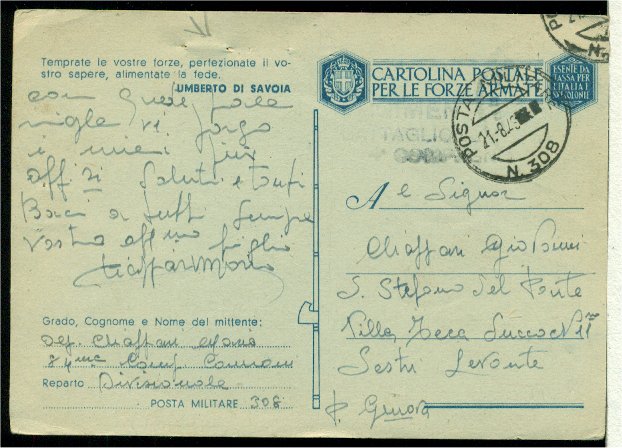 Temprate le vostre forze, perfezionate il vo-
stro sapere, alimentate la fede.
UMBERTO DI SAVOIA
con queste poche
righe vi porgo
i miei più
aff.zi Saluti e tanti
Baci a tutti Sempre
Vostro aff.mo figlio
Chiappari Mario
Grado, Cognome e Nome del mittente:
Chiappari Mario
Reparto Divisionale
POSTA MILITARE 308
CARTOLINA POSTALE
PER LE FORZE ARMATE
ESENTE DA
TASSA PER
L'ITALIA E
COLONIE
POSTA
21.8.43
N. 308
N.
Al Signor
Chiappari Giovanni
S. Stefano del Ponte
Villa Zeca
Sestri Levante
p. Genova